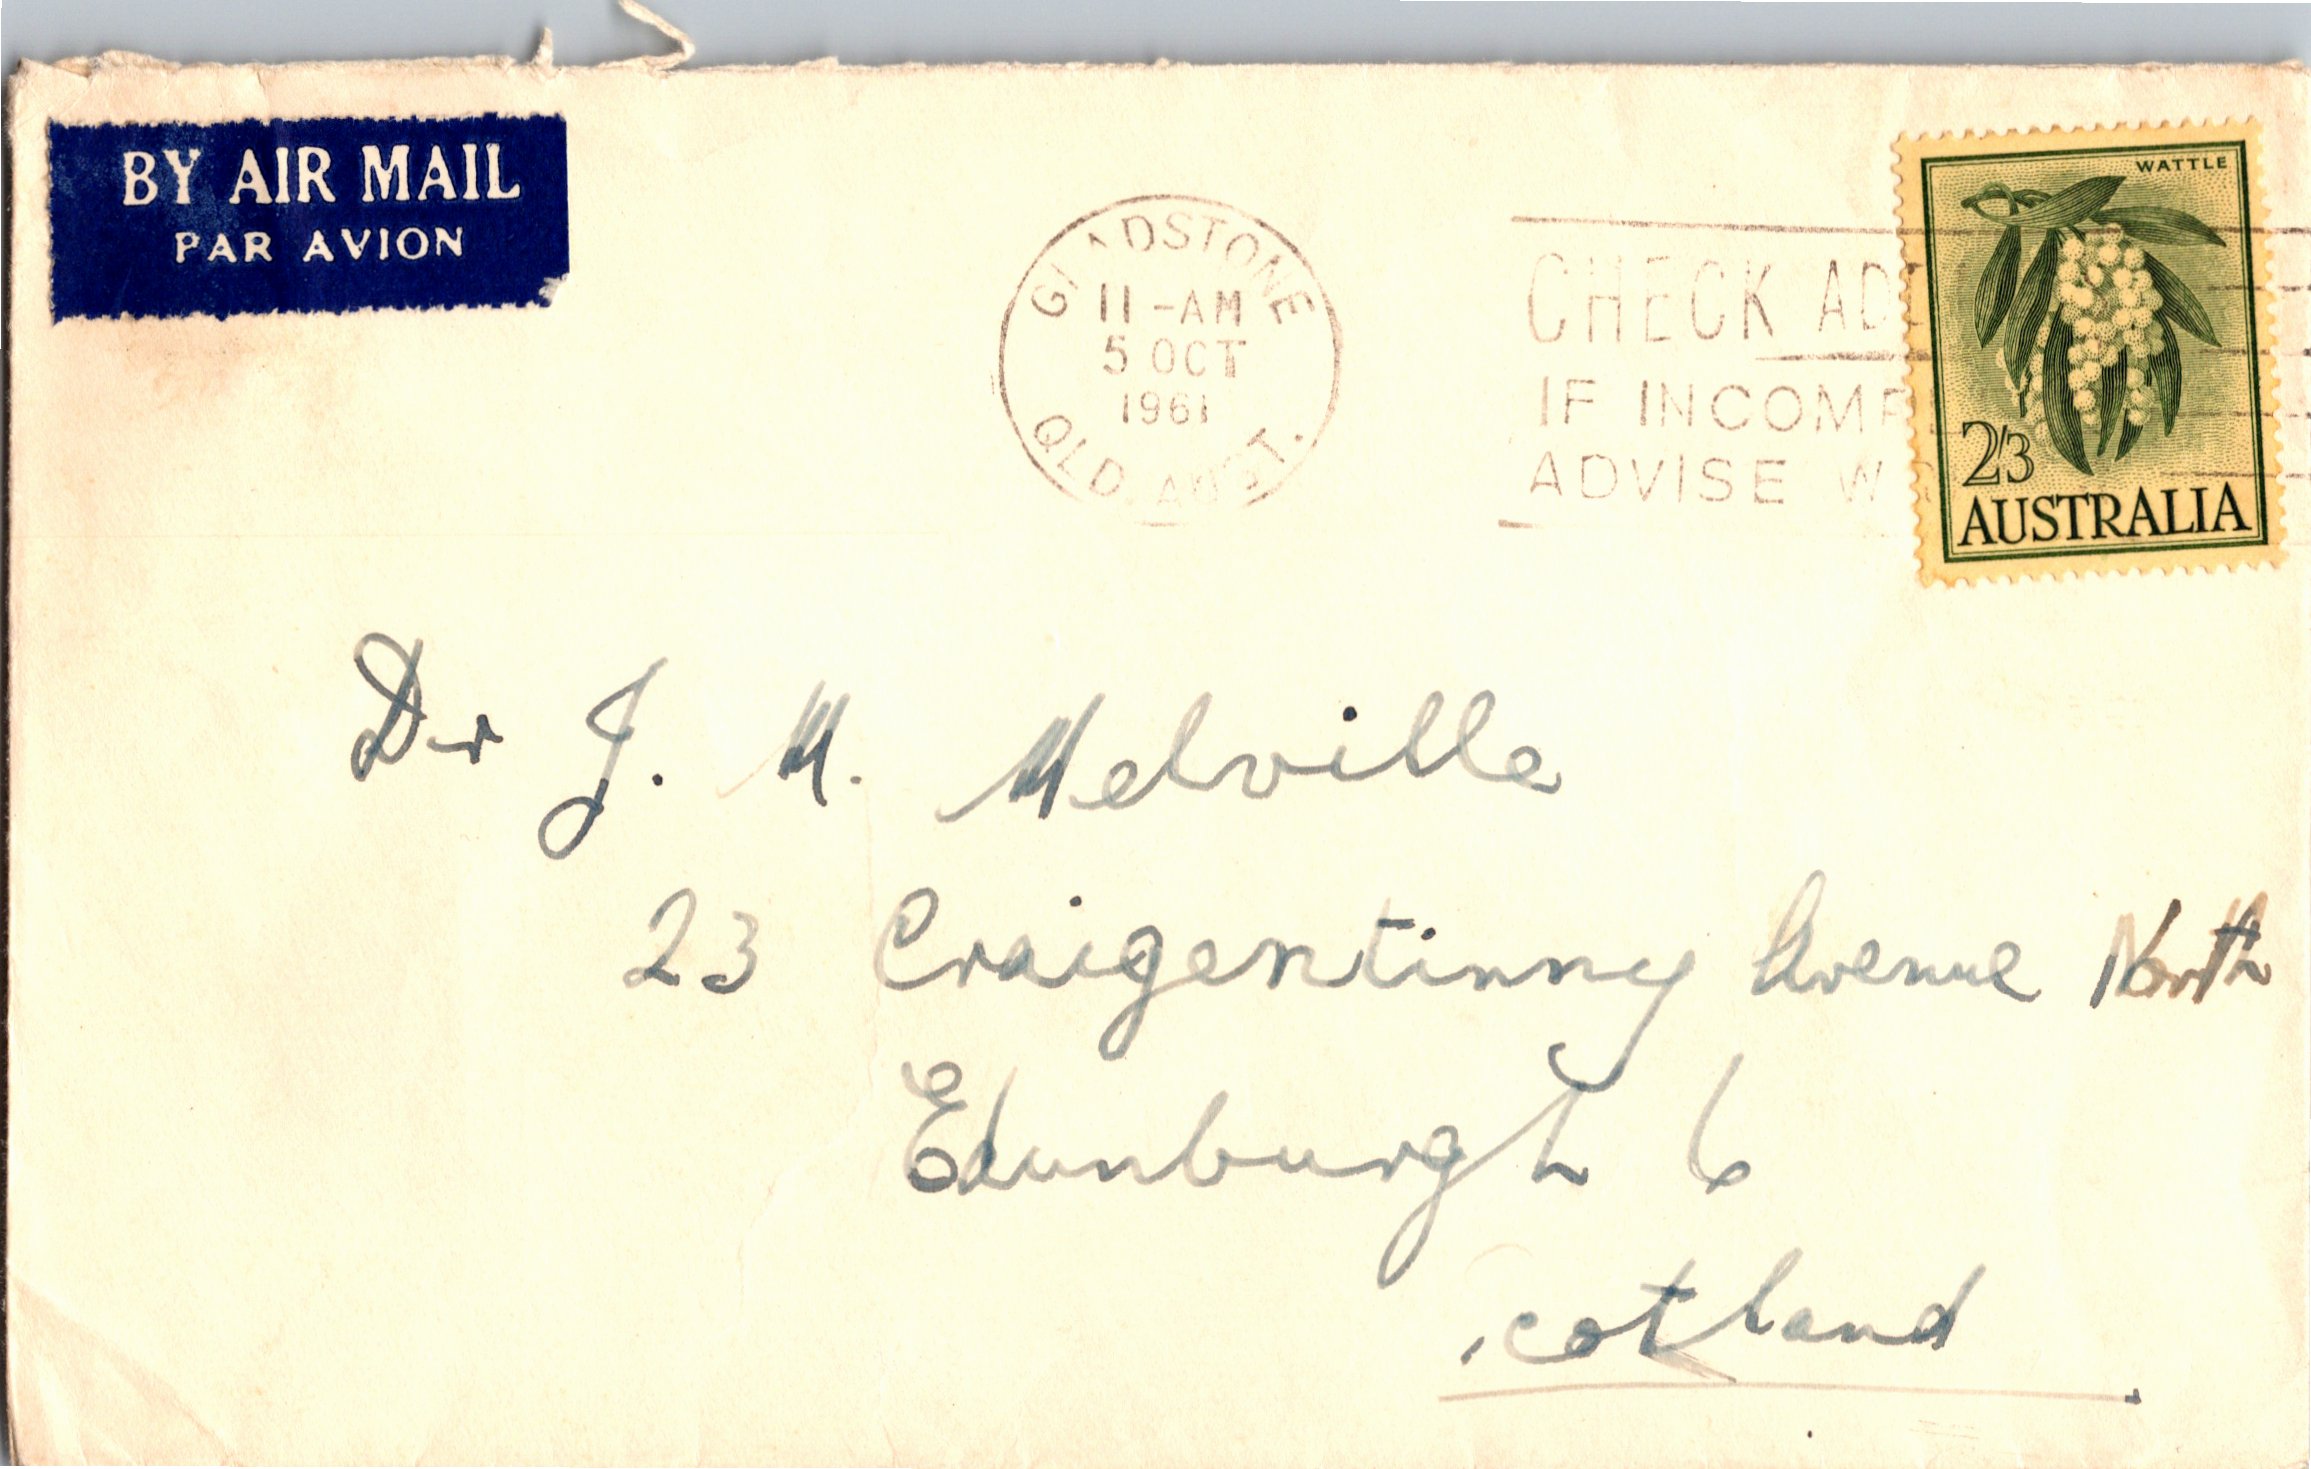 BY AIR MAIL
PAR AVION
GLADSTONE
11-AM
5 OCT
1961
QLD. AUST.
CHECK
IF
ADVISE
WATTLE
2/3
AUSTRALIA
Dr J. M. Melville
23 Craigentinny Avenue North
Edinburgh 6
Scotland